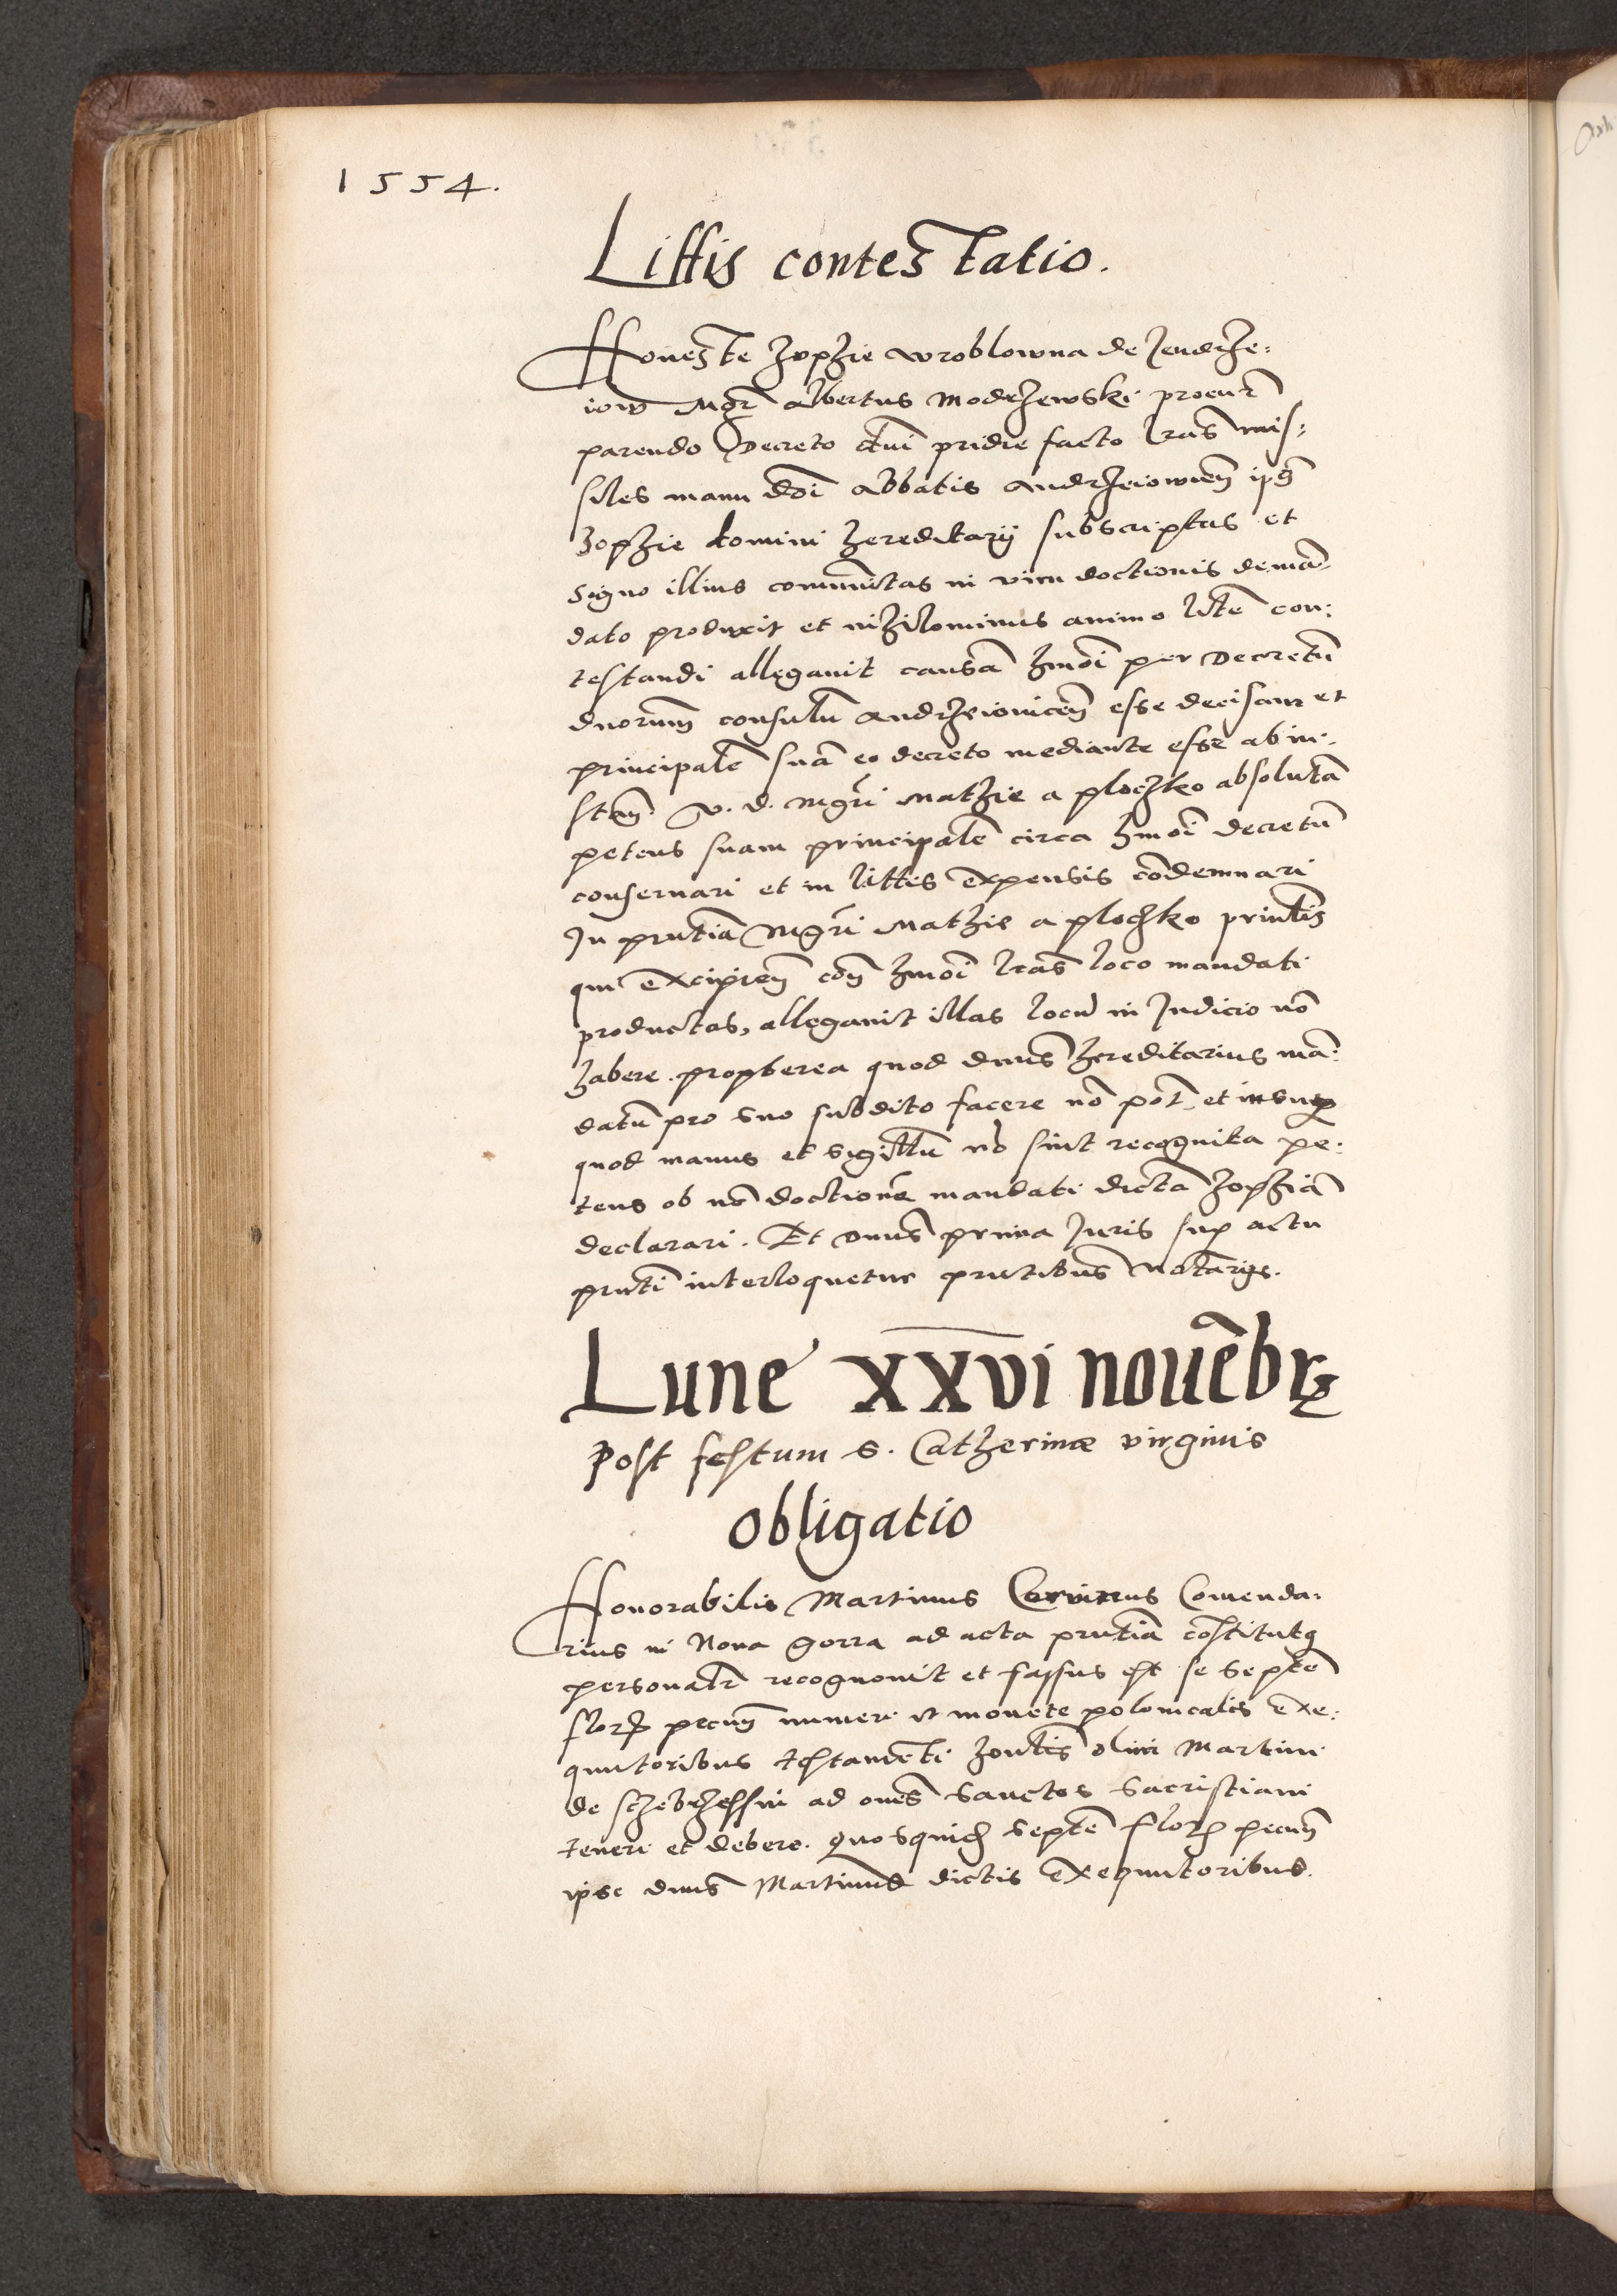 1554.
Littis contestatio.
Honeste Zophie Wroblowna de Jendrze=
iow Mgr Albertus Modrzewski procur
parendo Decreto dni pridie facto lras mis=
siles manu dni Abbatis Andrzeiowien ipsi
Zophie domini hereditarij subscriptas et
signo illius communitas in vim doctionis de man=
dato produxit et nihilominus animo lite con=
testandi allegauit causa hmoi per Decretu
dnorum consulu Andrzeiouicen esse decisam et
principale sua eo decreto mediante esse ab in=
stan v. d. mgri Mathie a plochko absoluta
petens suam principale circa hmoi decretu
conseruari et in littis expensis codemnari
In prntia Mgri Mathie a plochko prinlis
qui excipien con hmoi lras loco mandati
productas, allegauit illas locu in Judicio no
habere. propterea quod dnus hereditarius ma=
datu pro suo subdito facere no pot, et insup
quod manus et sigillu no sint recognita pe=
tens ob no doctione mandati dicta Zophia
declarari. Et Dnus prima Juris sup actu
prnti interloquetur prntibus Notarijs.
Lune xxvi nouebr
Post festum S. Catherinæ virginis
Obligatio
Honorabilis Martinus Coruinus Comenda=
rius in Noua gorra ad acta prntia costitutq
personalr recognouit et fassus est se septe
flor pecun numeri et monete polonicalis exe=
quutoribus testamenti honlis olim Martini
de sczebrzessin ad omes sanctos sacristiani
teneri et debere. Quosquid septe flor pecun
ipse dnus Martinus dictis exequutoribus.